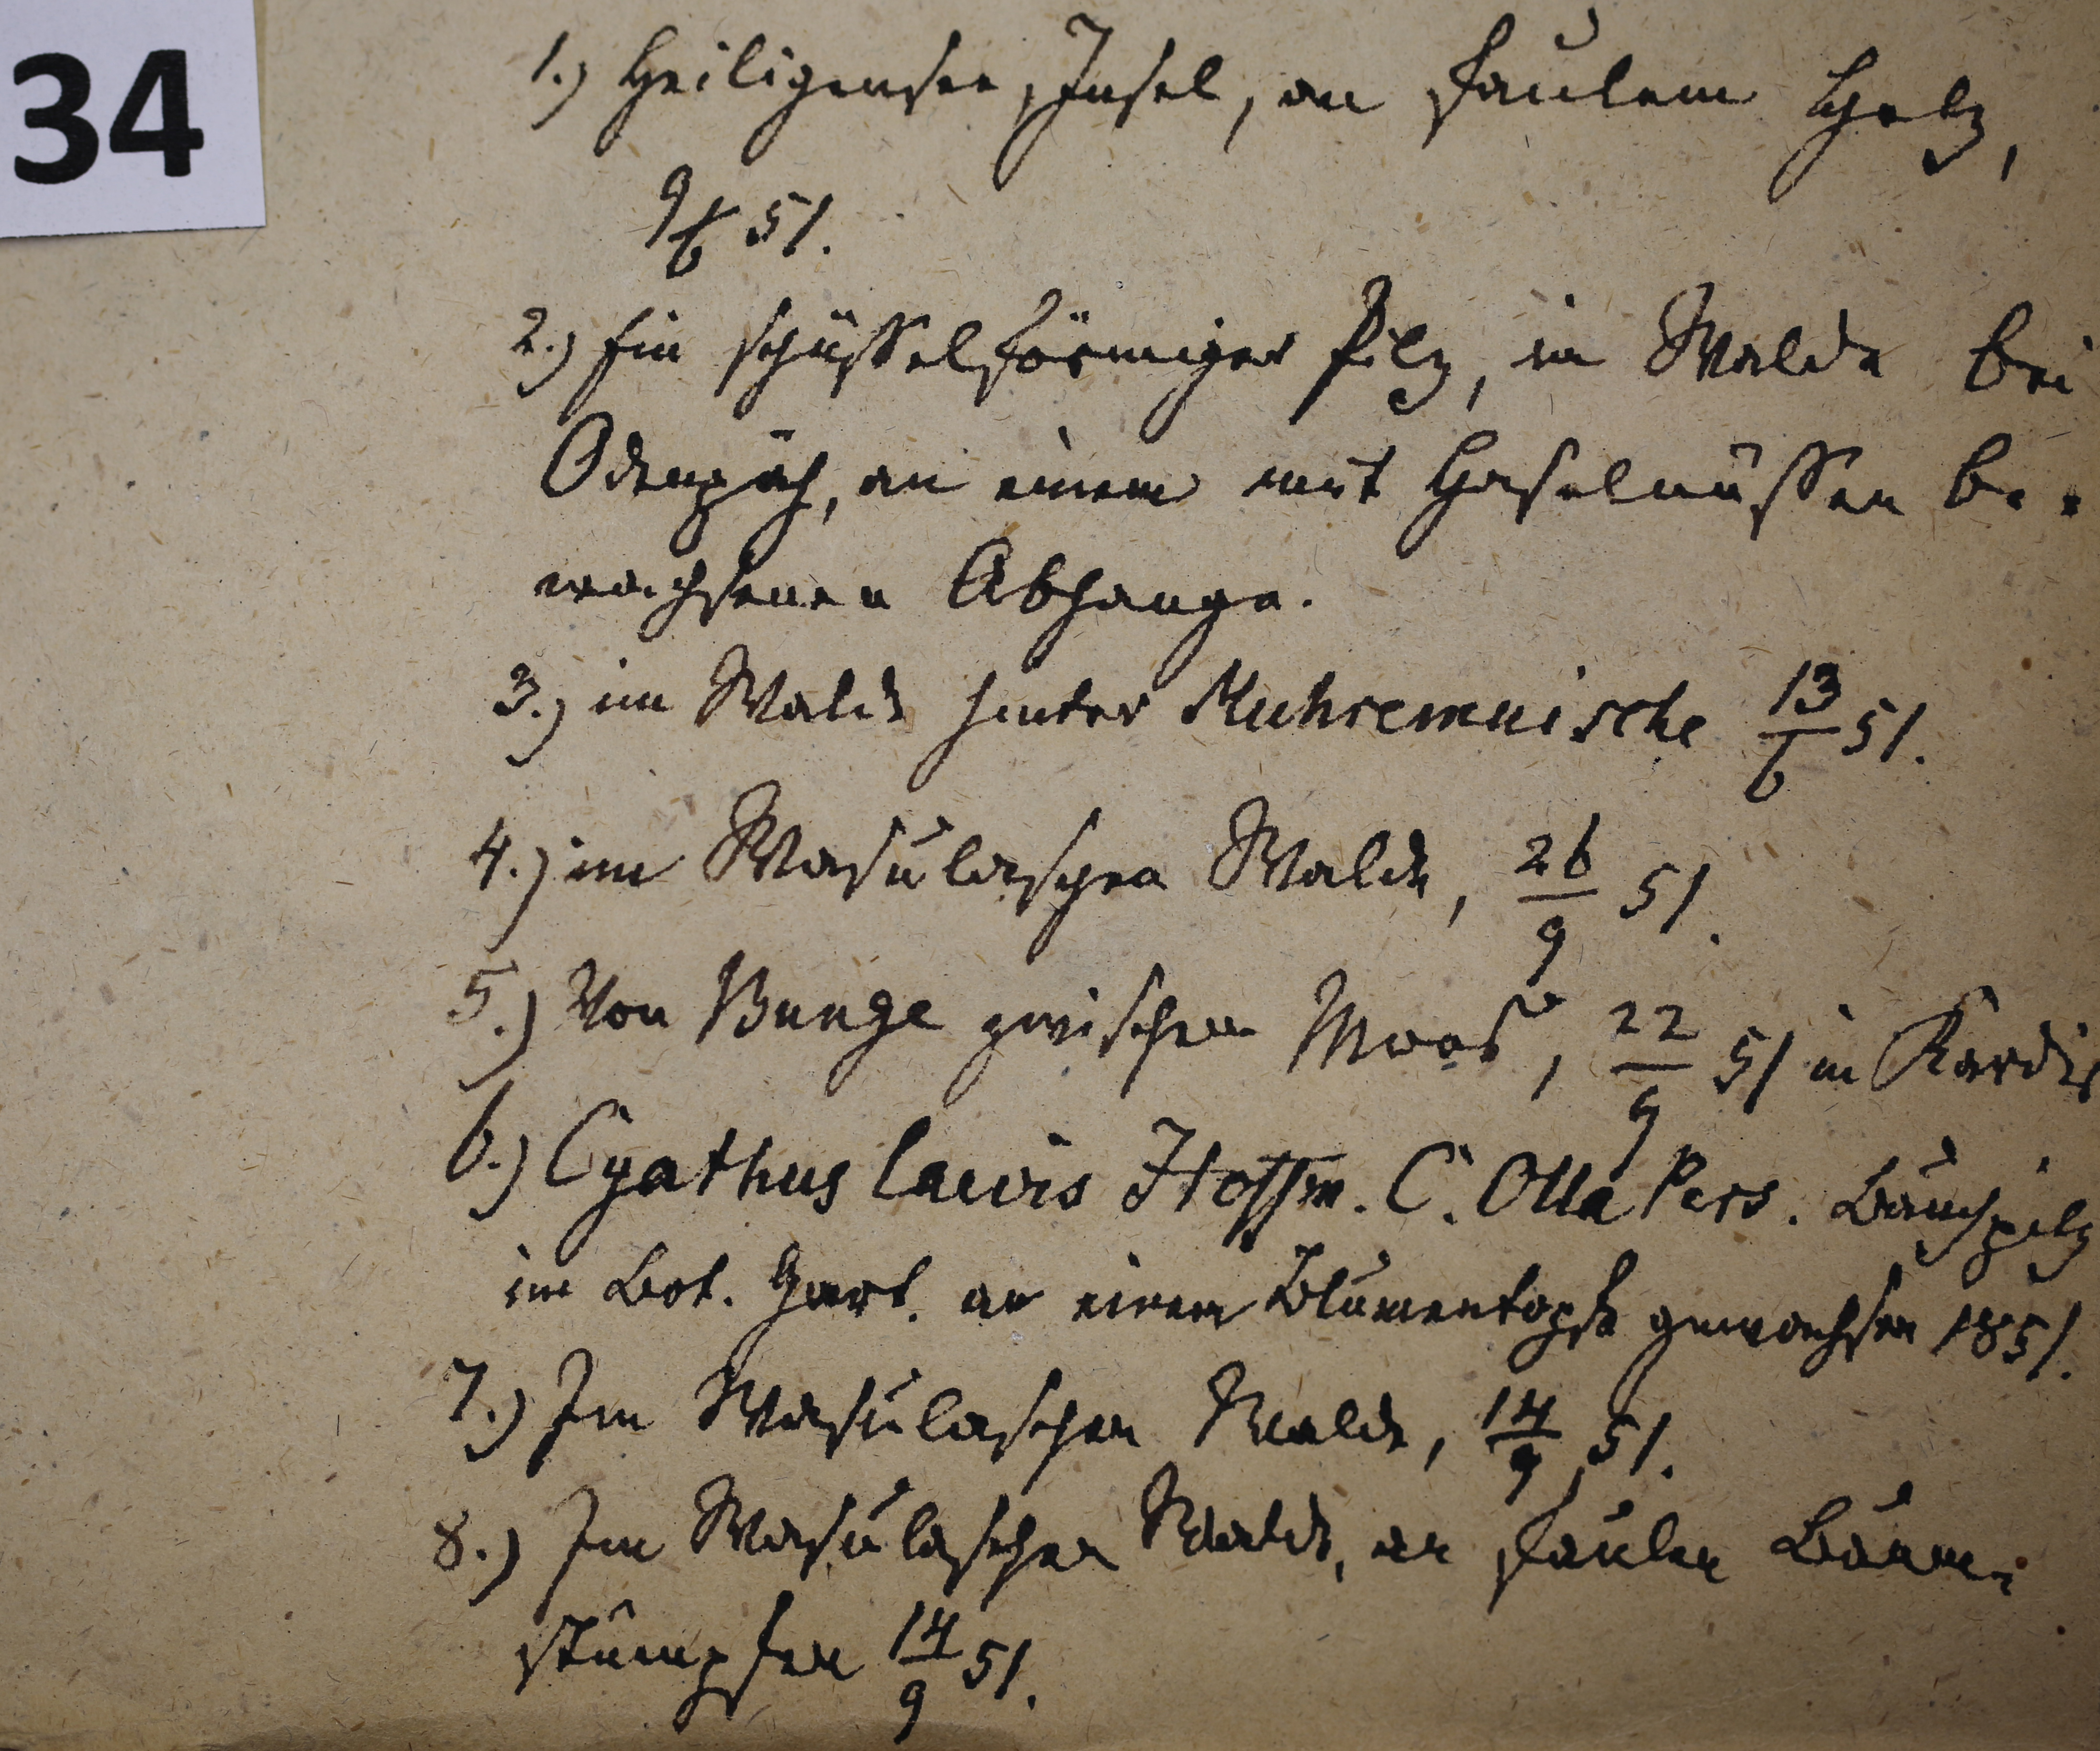 34
1.) Heiligensee, Insel, an faulem Holz,
9/6 51.
2.) Ein schüsselförmiger Pilz, im Walde bei
Odenpäh, an einem mit Haselnüssen be-
wachsenen Abhange.
3.) im Walde hinter Kuhremuische 13/6 51.
4.) im Wasulaschen Walde, 26/9 51.
5.) Von Bunge zwischen Moos, 22/9 51 in Kardis
6.) Cyathus laevis Hoffm. C. Olla Pers. Bauchpilz
im Bot. Gart. an einem Blumentopfe gewachsen 1851.
7.) Im Wasulaschen Walde, 14/9 51.
8.) Im Wasulaschen Walde, an faulen Baum-
stümpfen 14/9 51.